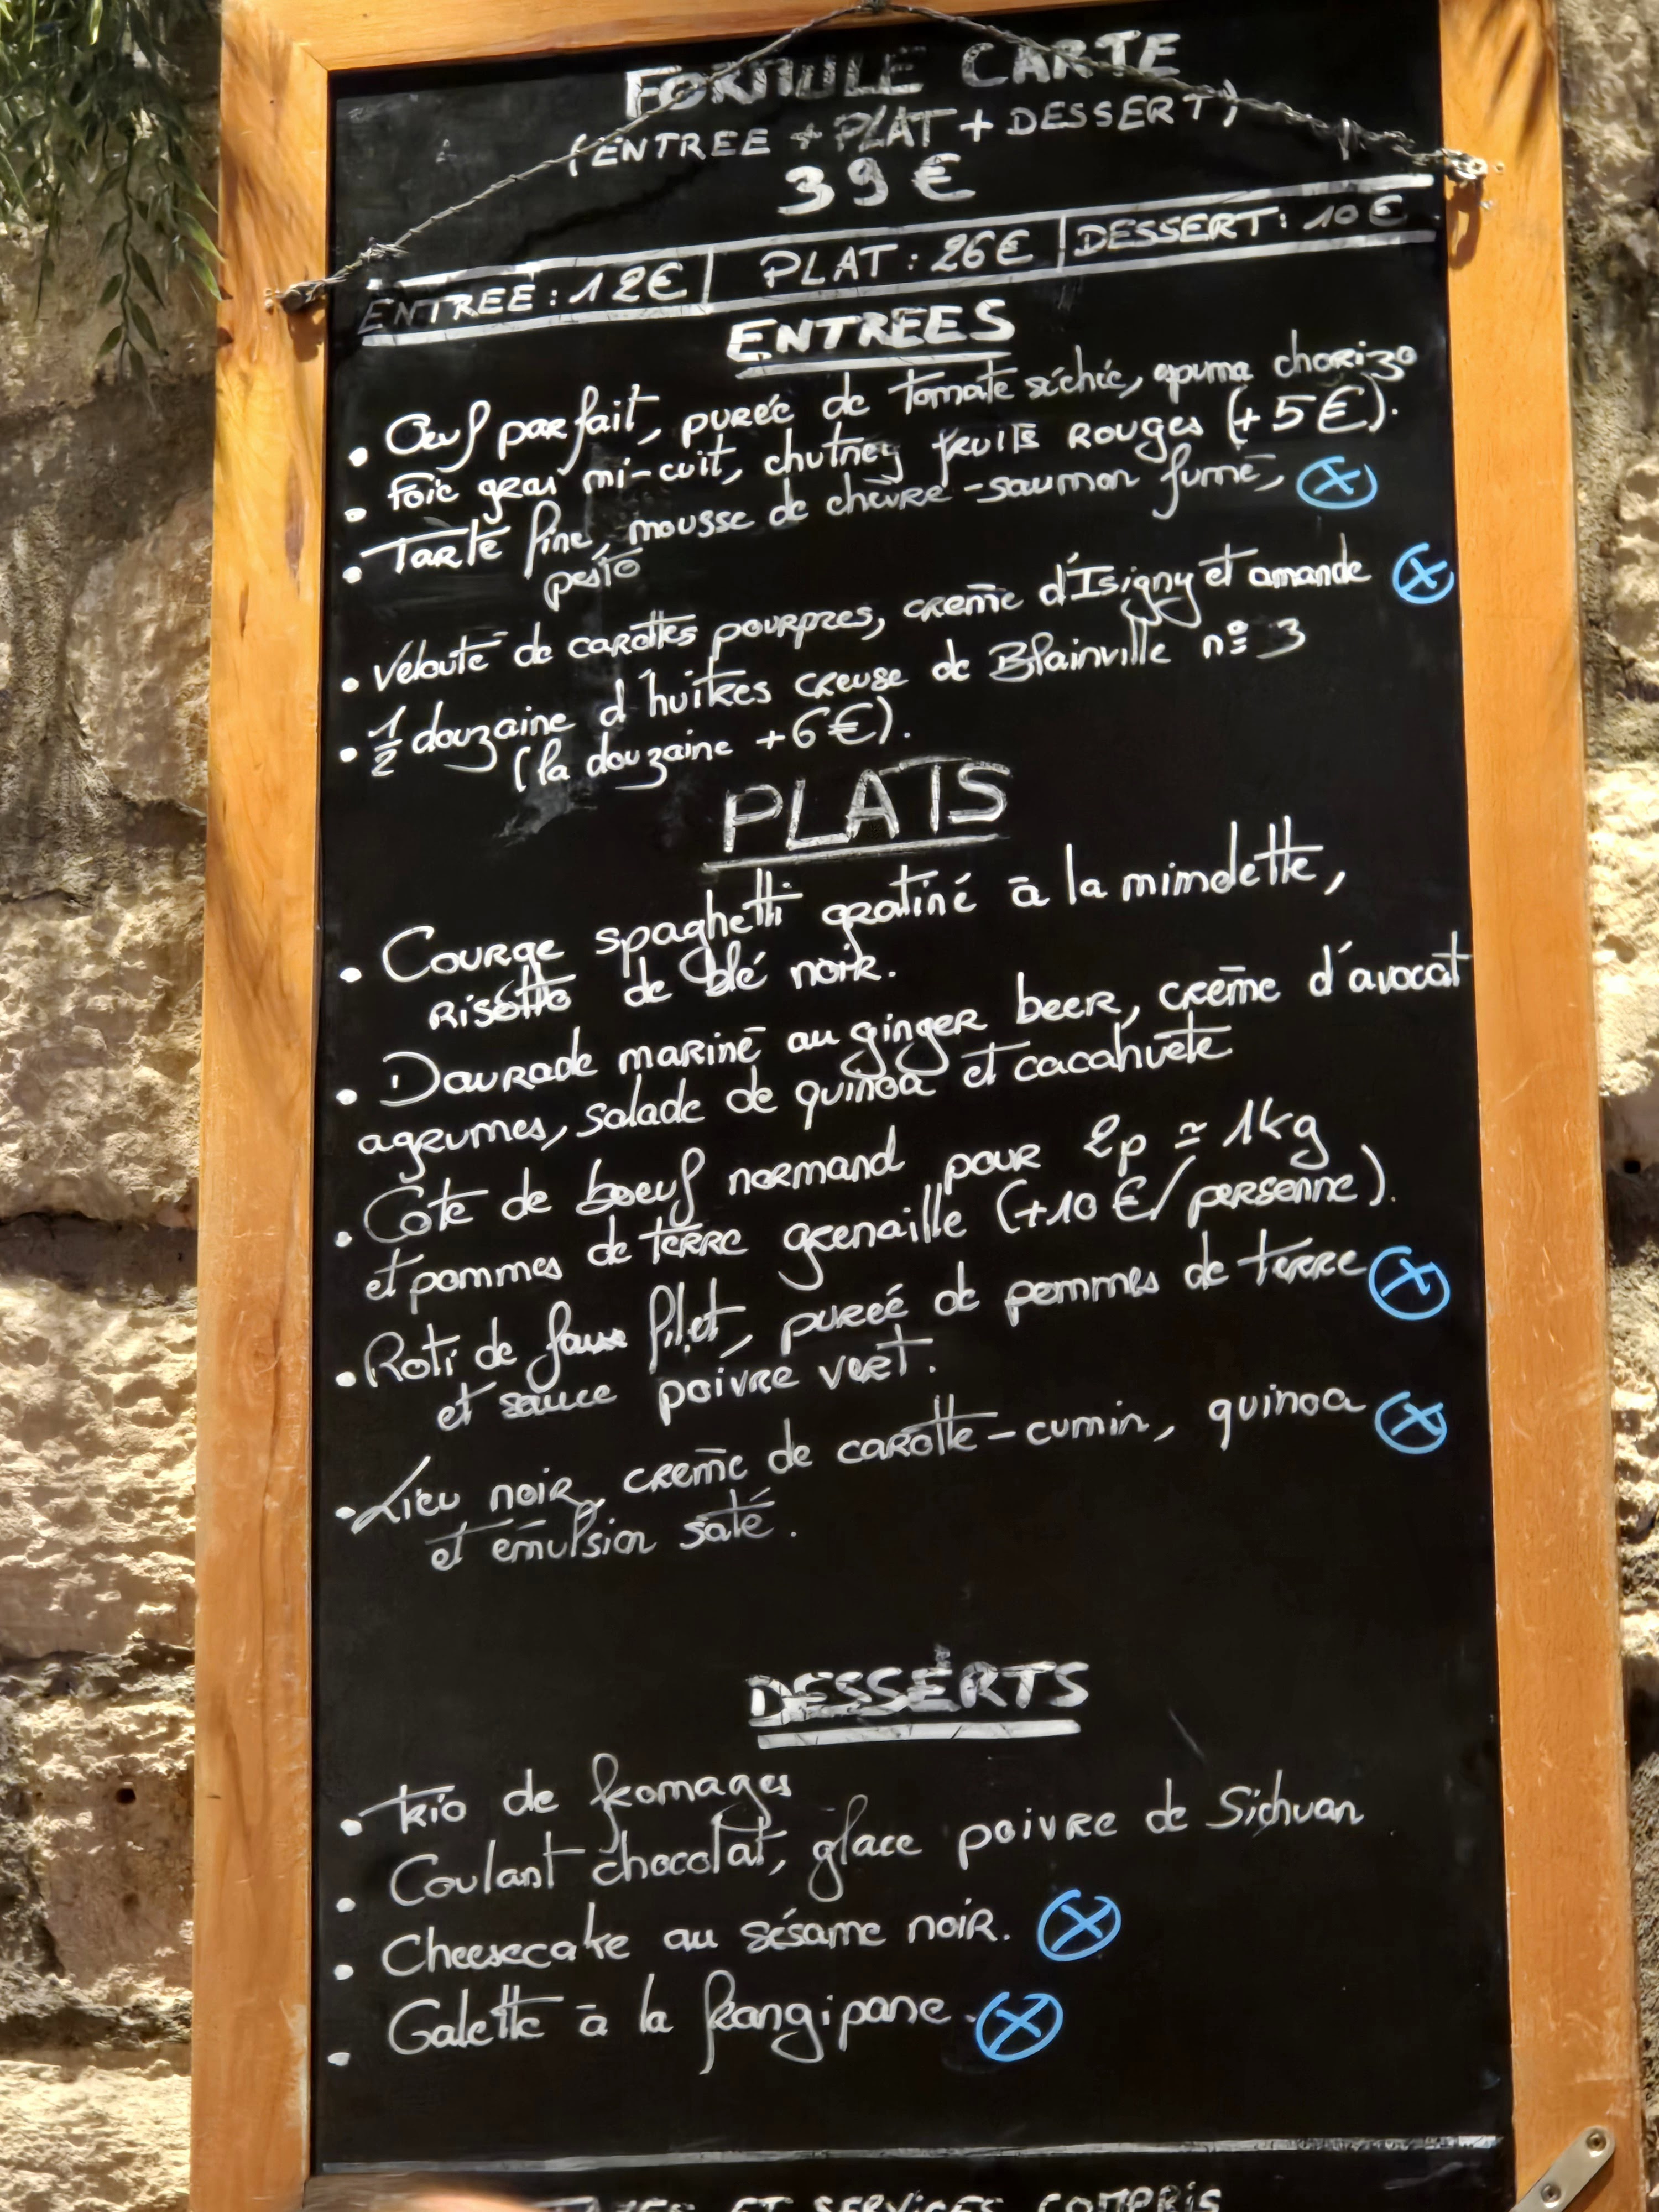 FORMULE CARTE
(ENTREE + PLAT + DESSERT)
39€
ENTREE : 12€ | PLAT : 26€ | DESSERT : 10€
ENTREES
• Œuf parfait, purée de tomate séchée, espuma chorizo
• Foie gras mi-cuit, chutney fruits rouges (+5€).
• Tarte fine, mousse de chèvre-saumon fumé, ⓧ
pesto
• Velouté de carottes pourpres, crème d'Isigny et amande ⓧ
• 1/2 douzaine d'huîtres creuse de Blainville n° 3
(la douzaine +6€).
PLATS
• Courge spaghetti gratiné à la mimolette,
risotto de blé noir.
• Daurade mariné au ginger beer, crème d'avocat
agrumes, salade de quinoa et cacahuète
• Côte de boeuf normand pour 2p ≃ 1kg
et pommes de terre grenaille (+10€/personne).
• Roti de faux filet, pureé de pommes de terre ⓧ
et sauce poivre vert.
• Lieu noir, crème de carotte-cumin, quinoa ⓧ
et émulsion saté.
DESSERTS
• trio de fromages
• Coulant chocolat, glace poivre de Sichuan
• Cheesecake au sésame noir. ⓧ
• Galette à la frangipane. ⓧ
ET SERVICES COMPRIS